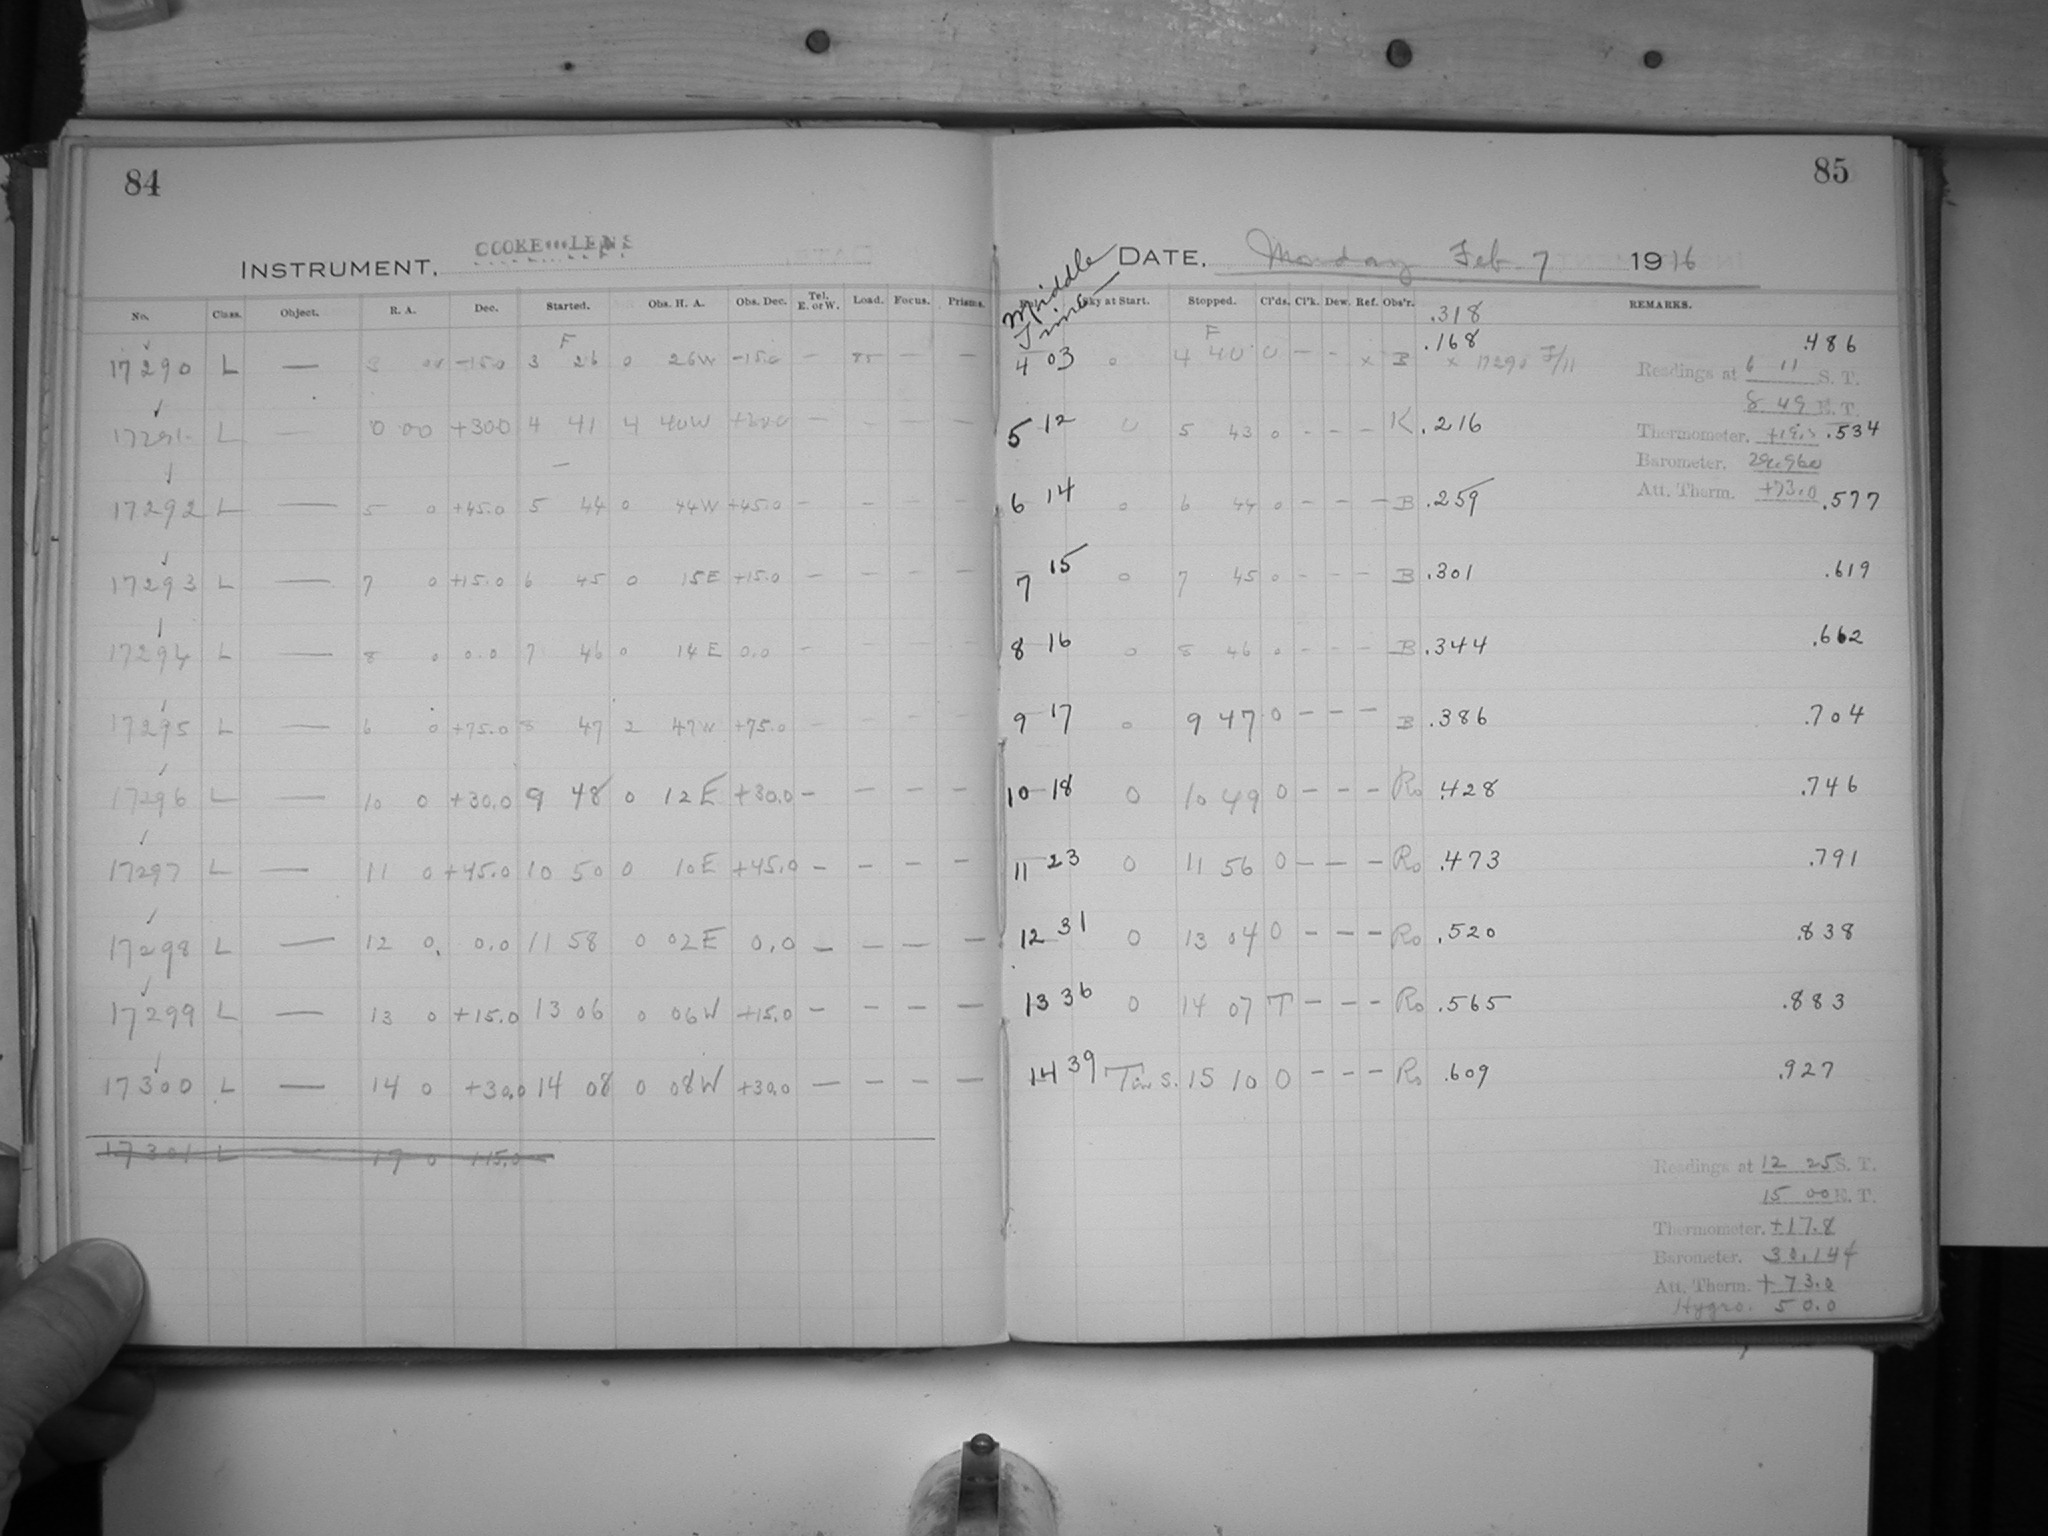 84
INSTRUMENT, COOKE LENS
No. Class. Object. R. A. Dec. Started. Obs. H. A. Obs. Dec. Tel. E. or W. Load. Focus. Prisms.
17290 L — 3 00 -15.0 3 F 26 0 26W -15.0 — 85 — —
17291 L — 0 00 +30.0 4 41 4 40W +30.0 — — — —
17292 L — 5 0 +45.0 5 44 0 44W +45.0 — — — —
17293 L — 7 0 +15.0 6 45 0 15E +15.0 — — — —
17294 L — 8 0 0.0 7 46 0 14E 0.0 — — — —
17295 L — 6 0 +75.0 8 47 2 47W +75.0 — — — —
17296 L — 10 0 +30.0 9 48 0 12E +30.0 — — — —
17297 L — 11 0 +45.0 10 50 0 10E +45.0 — — — —
17298 L — 12 0. 0.0 11 58 0 02E 0.0 — — — —
17299 L — 13 0 +15.0 13 06 0 06W +15.0 — — — —
17300 L — 14 0 +30.0 14 08 0 08W +30.0 — — — —
17301 L — 17 0 +15.0
85
DATE, Monday Feb. 7 1916
Middle Time
Sky at Start. Stopped. Cl'ds. Cl'k. Dew. Ref. Obs'r. REMARKS.
.318
4 03 0 4 F 40 0 — — x B .168 x 17290 F/11 .486
Readings at 6 11 S. T.
8 49 E. T.
5 12 0 5 43 0 - - - K .216 Thermometer. .534
Barometer. 29.960
Att. Therm. +73.0
6 14 0 6 44 0 - - - B .259 .577
7 15 0 7 45 0 - - - B .301 .619
8 16 0 8 46 0 - - - B .344 .662
9 17 0 9 47 0 - - - B .386 .704
10 18 0 10 49 0 - - - Ro .428 .746
11 23 0 11 56 0 - - - Ro .473 .791
12 31 0 13 04 0 - - - Ro .520 .838
13 36 0 14 07 T - - - Ro .565 .883
14 39 T in S. 15 10 0 - - - Ro .609 .927
Readings at 12 25 S. T.
15 00 E. T.
Thermometer. +17.8
Barometer. 30.144
Att. Therm. +73.0
Hygro. 50.0